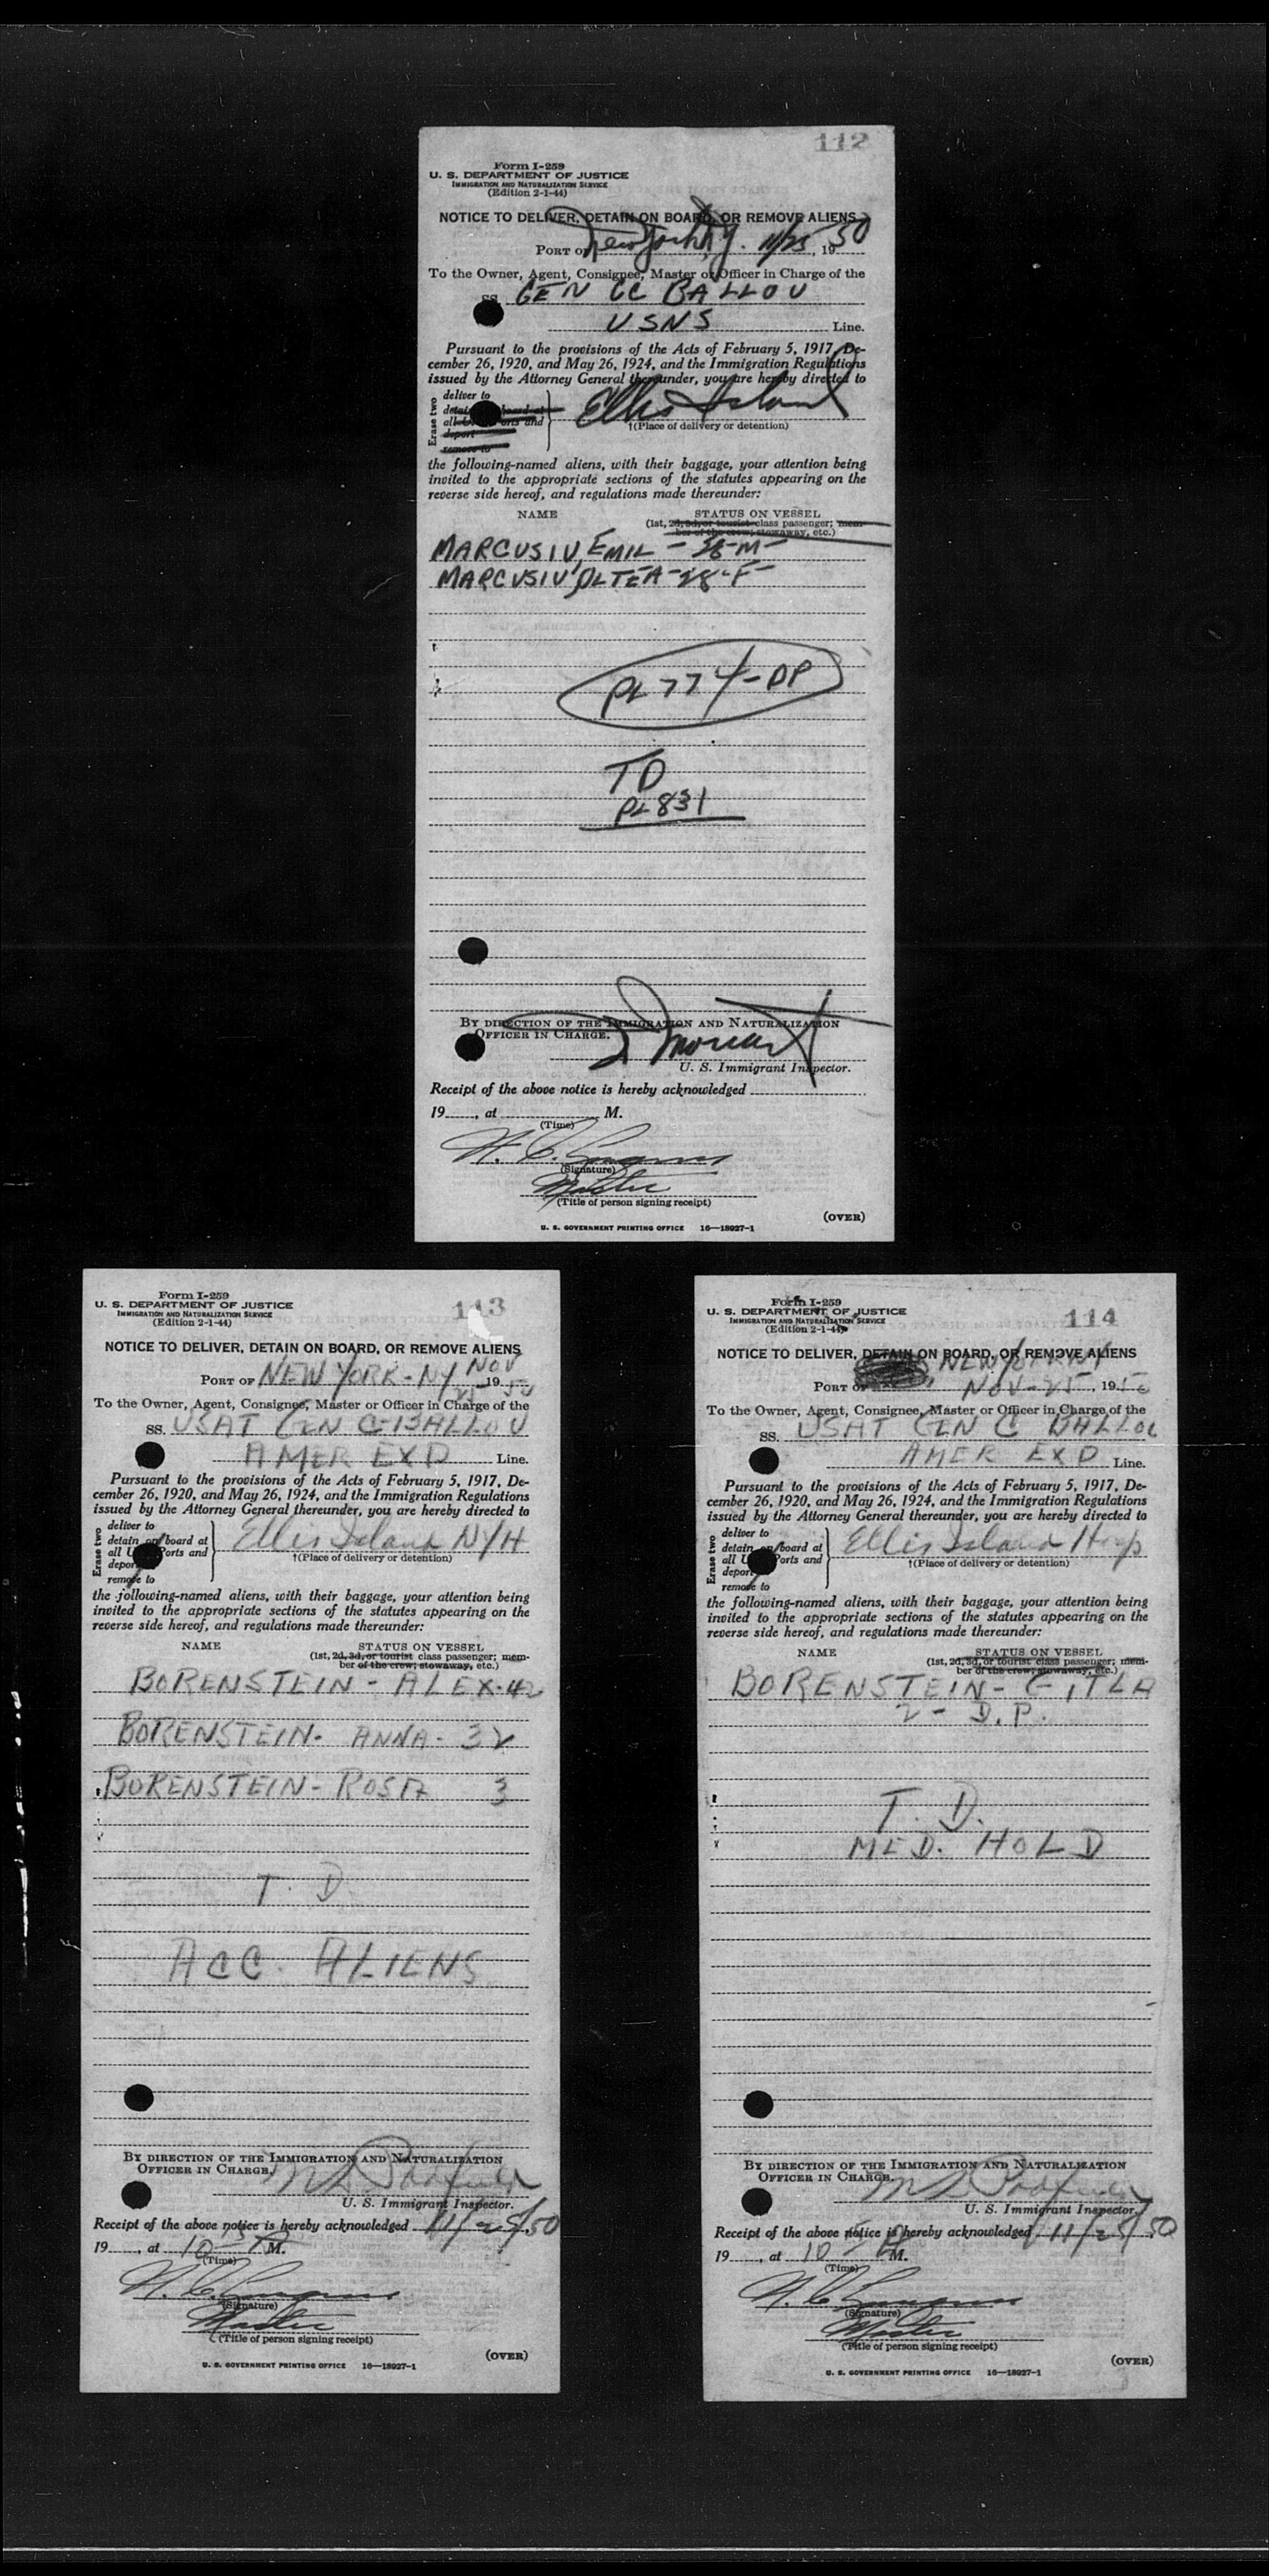 112
Form I-259
U. S. DEPARTMENT OF JUSTICE
IMMIGRATION AND NATURALIZATION SERVICE
(Edition 2-1-44)
NOTICE TO DELIVER, DETAIN ON BOARD, OR REMOVE ALIENS
PORT OF New York, NY. 11/25, 1950
To the Owner, Agent, Consignee, Master or Officer in Charge of the
SS. GEN CC BALLOU
USNS Line.
Pursuant to the provisions of the Acts of February 5, 1917, De-
cember 26, 1920, and May 26, 1924, and the Immigration Regulations
issued by the Attorney General thereunder, you are hereby directed to
Erase two
deliver to
detain on board at
all U. S. ports and
deport
remove to
Ellis Island
†(Place of delivery or detention)
the following-named aliens, with their baggage, your attention being
invited to the appropriate sections of the statutes appearing on the
reverse side hereof, and regulations made thereunder:
NAME STATUS ON VESSEL
(1st, 2d, 3d, or tourist class passenger; mem-
ber of the crew; stowaway, etc.)
MARCUSIU, EMIL - 38-M-
MARCUSIU, OLTEA - 28-F-
PL774-DP
TD
PL831
BY DIRECTION OF THE IMMIGRATION AND NATURALIZATION
OFFICER IN CHARGE.
U. S. Immigrant Inspector.
Receipt of the above notice is hereby acknowledged
19, at M.
(Time)
(Signature)
Master
(Title of person signing receipt)
(OVER)
U. S. GOVERNMENT PRINTING OFFICE 16—18927-1
113
Form I-259
U. S. DEPARTMENT OF JUSTICE
IMMIGRATION AND NATURALIZATION SERVICE
(Edition 2-1-44)
NOTICE TO DELIVER, DETAIN ON BOARD, OR REMOVE ALIENS
PORT OF NEW YORK - NY NOV 25 1950
To the Owner, Agent, Consignee, Master or Officer in Charge of the
SS. USAT GEN C-BALLOU
AMER EXD Line.
Pursuant to the provisions of the Acts of February 5, 1917, De-
cember 26, 1920, and May 26, 1924, and the Immigration Regulations
issued by the Attorney General thereunder, you are hereby directed to
Erase two
deliver to
detain on board at
all U. S. Ports and
deport
remove to
Ellis Island NYH
†(Place of delivery or detention)
the following-named aliens, with their baggage, your attention being
invited to the appropriate sections of the statutes appearing on the
reverse side hereof, and regulations made thereunder:
NAME STATUS ON VESSEL
(1st, 2d, 3d, or tourist class passenger; mem-
ber of the crew; stowaway, etc.)
BORENSTEIN - ALEX-42
BORENSTEIN- ANNA- 32
BORENSTEIN- ROSA 3
T. D.
ACC. ALIENS
BY DIRECTION OF THE IMMIGRATION AND NATURALIZATION
OFFICER IN CHARGE.
U. S. Immigrant Inspector.
Receipt of the above notice is hereby acknowledged 11/25/50
19, at 10 M.
(Time)
(Signature)
Master
(Title of person signing receipt)
(OVER)
U. S. GOVERNMENT PRINTING OFFICE 16—18927-1
114
Form I-259
U. S. DEPARTMENT OF JUSTICE
IMMIGRATION AND NATURALIZATION SERVICE
(Edition 2-1-44)
NOTICE TO DELIVER, DETAIN ON BOARD, OR REMOVE ALIENS
NEW YORK NY
PORT OF NOV-25, 1950
To the Owner, Agent, Consignee, Master or Officer in Charge of the
SS. USAT GEN C BALLOU
AMER EXD Line.
Pursuant to the provisions of the Acts of February 5, 1917, De-
cember 26, 1920, and May 26, 1924, and the Immigration Regulations
issued by the Attorney General thereunder, you are hereby directed to
Erase two
deliver to
detain on board at
all U. S. Ports and
deport
remove to
Ellis Island Hosp
†(Place of delivery or detention)
the following-named aliens, with their baggage, your attention being
invited to the appropriate sections of the statutes appearing on the
reverse side hereof, and regulations made thereunder:
NAME STATUS ON VESSEL
(1st, 2d, 3d, or tourist class passenger; mem-
ber of the crew; stowaway, etc.)
BORENSTEIN- GITLA
2 - D.P.
T. D.
MED. HOLD
BY DIRECTION OF THE IMMIGRATION AND NATURALIZATION
OFFICER IN CHARGE.
U. S. Immigrant Inspector.
Receipt of the above notice is hereby acknowledged 11/25/50
19, at 10 M.
(Time)
(Signature)
Master
(Title of person signing receipt)
(OVER)
U. S. GOVERNMENT PRINTING OFFICE 16—18927-1